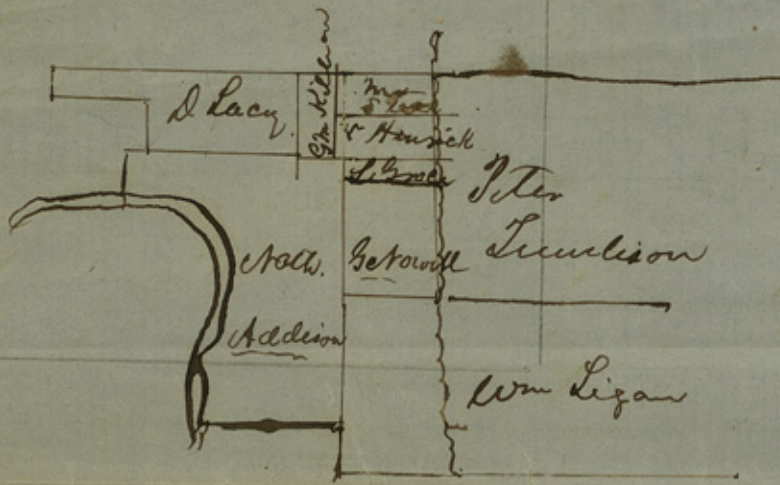 D Lacy
Gm Killian
Mrs
& Henrick
L. Grace
Peter
Tumlison
Nath.
Addison
G Nowill
Wm Ligan